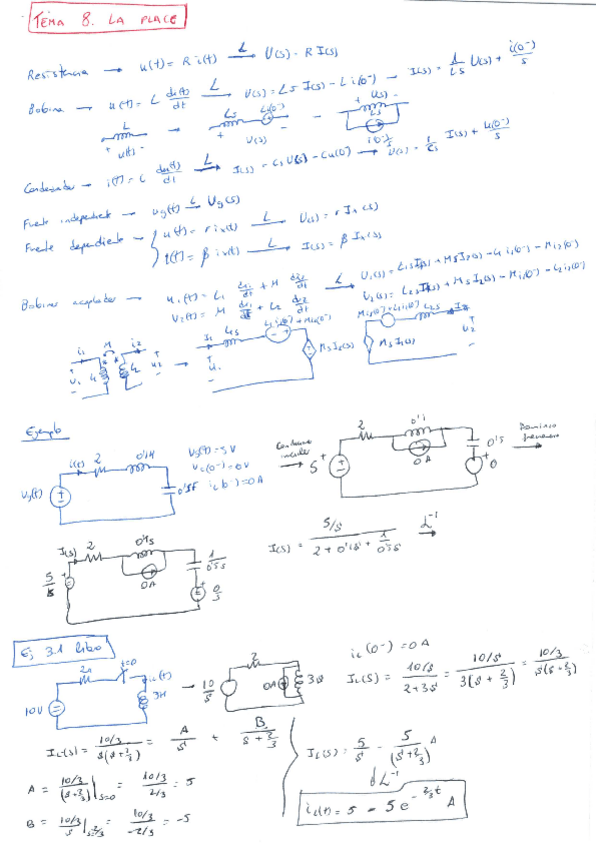 TEMA 8. LA PLACE
Resistencia → u(t) = R i(t) L→ U(s) = R I(s)
Bobina → u(t) = L di(t)/dt L→ U(s) = LS I(s) - L i(0⁻) → I(s) = 1/LS U(s) + i(0⁻)/s
L → Ls Li(0⁻) - + U(s) -
+ u(t) - + U(s) - Ls
Condensador → i(t) = C du(t)/dt L→ I(s) = Cs U(s) - Cu(0⁻) → U(s) = 1/Cs I(s) + u(0⁻)/s
Fuente independiente → ug(t) L→ Ug(s)
Fuente dependiente → { u(t) = r ix(t) L→ U(s) = r Ix(s)
i(t) = β ix(t) L→ I(s) = β Ix(s)
Bobinas acopladas → u1(t) = L1 di1/dt + M di2/dt L→ U1(s) = L1S I1(s) + MS I2(s) - L1 i1(0⁻) - M i2(0⁻)
U2(t) = M di1/dt + L2 di2/dt U2(s) = L2S I2(s) + MS I1(s) - M i1(0⁻) - L2 i2(0⁻)
i1 M i2 → I1 L1s L1 i1(0⁻) + M i2(0⁻) M i1(0⁻) + L2 i2(0⁻) L2s I2
+ U1 - L1 L2 + U2 - + U1 - Ms I2(s) Ms I1(s) + U2 -
Ejemplo
Vg(t) i(t) 2 0'1H 0'5F
Vg(t) = 5 V
Vc(0⁻) = 0 V
iL(0⁻) = 0 A
→ 5 2 0'1 0A 0'5 0 Dominio frecuencia →
5/s I(s) 2 0'1s 0A 1/0'5s 0/s
I(s) = 5/s / (2 + 0'1s + 1/0'5s) L⁻¹→
Ej 3.1 libro
10V 2Ω t=0 iL(t) 3H → 10/s 2 0A 3s
iL(0⁻) = 0 A
IL(s) = 10/s / (2+3s) = 10/s / 3(s + 2/3) = 10/3 / s(s + 2/3)
IL(s) = 10/3 / s(s+2/3) = A/s + B/(s + 2/3)
A = 10/3 / (s+2/3) |s=0 = 10/3 / 2/3 = 5
B = 10/3 / s |s=-2/3 = 10/3 / -2/3 = -5
IL(s) = 5/s - 5/(s+2/3) A
↓ L⁻¹
iL(t) = 5 - 5 e^(-2/3 t) A